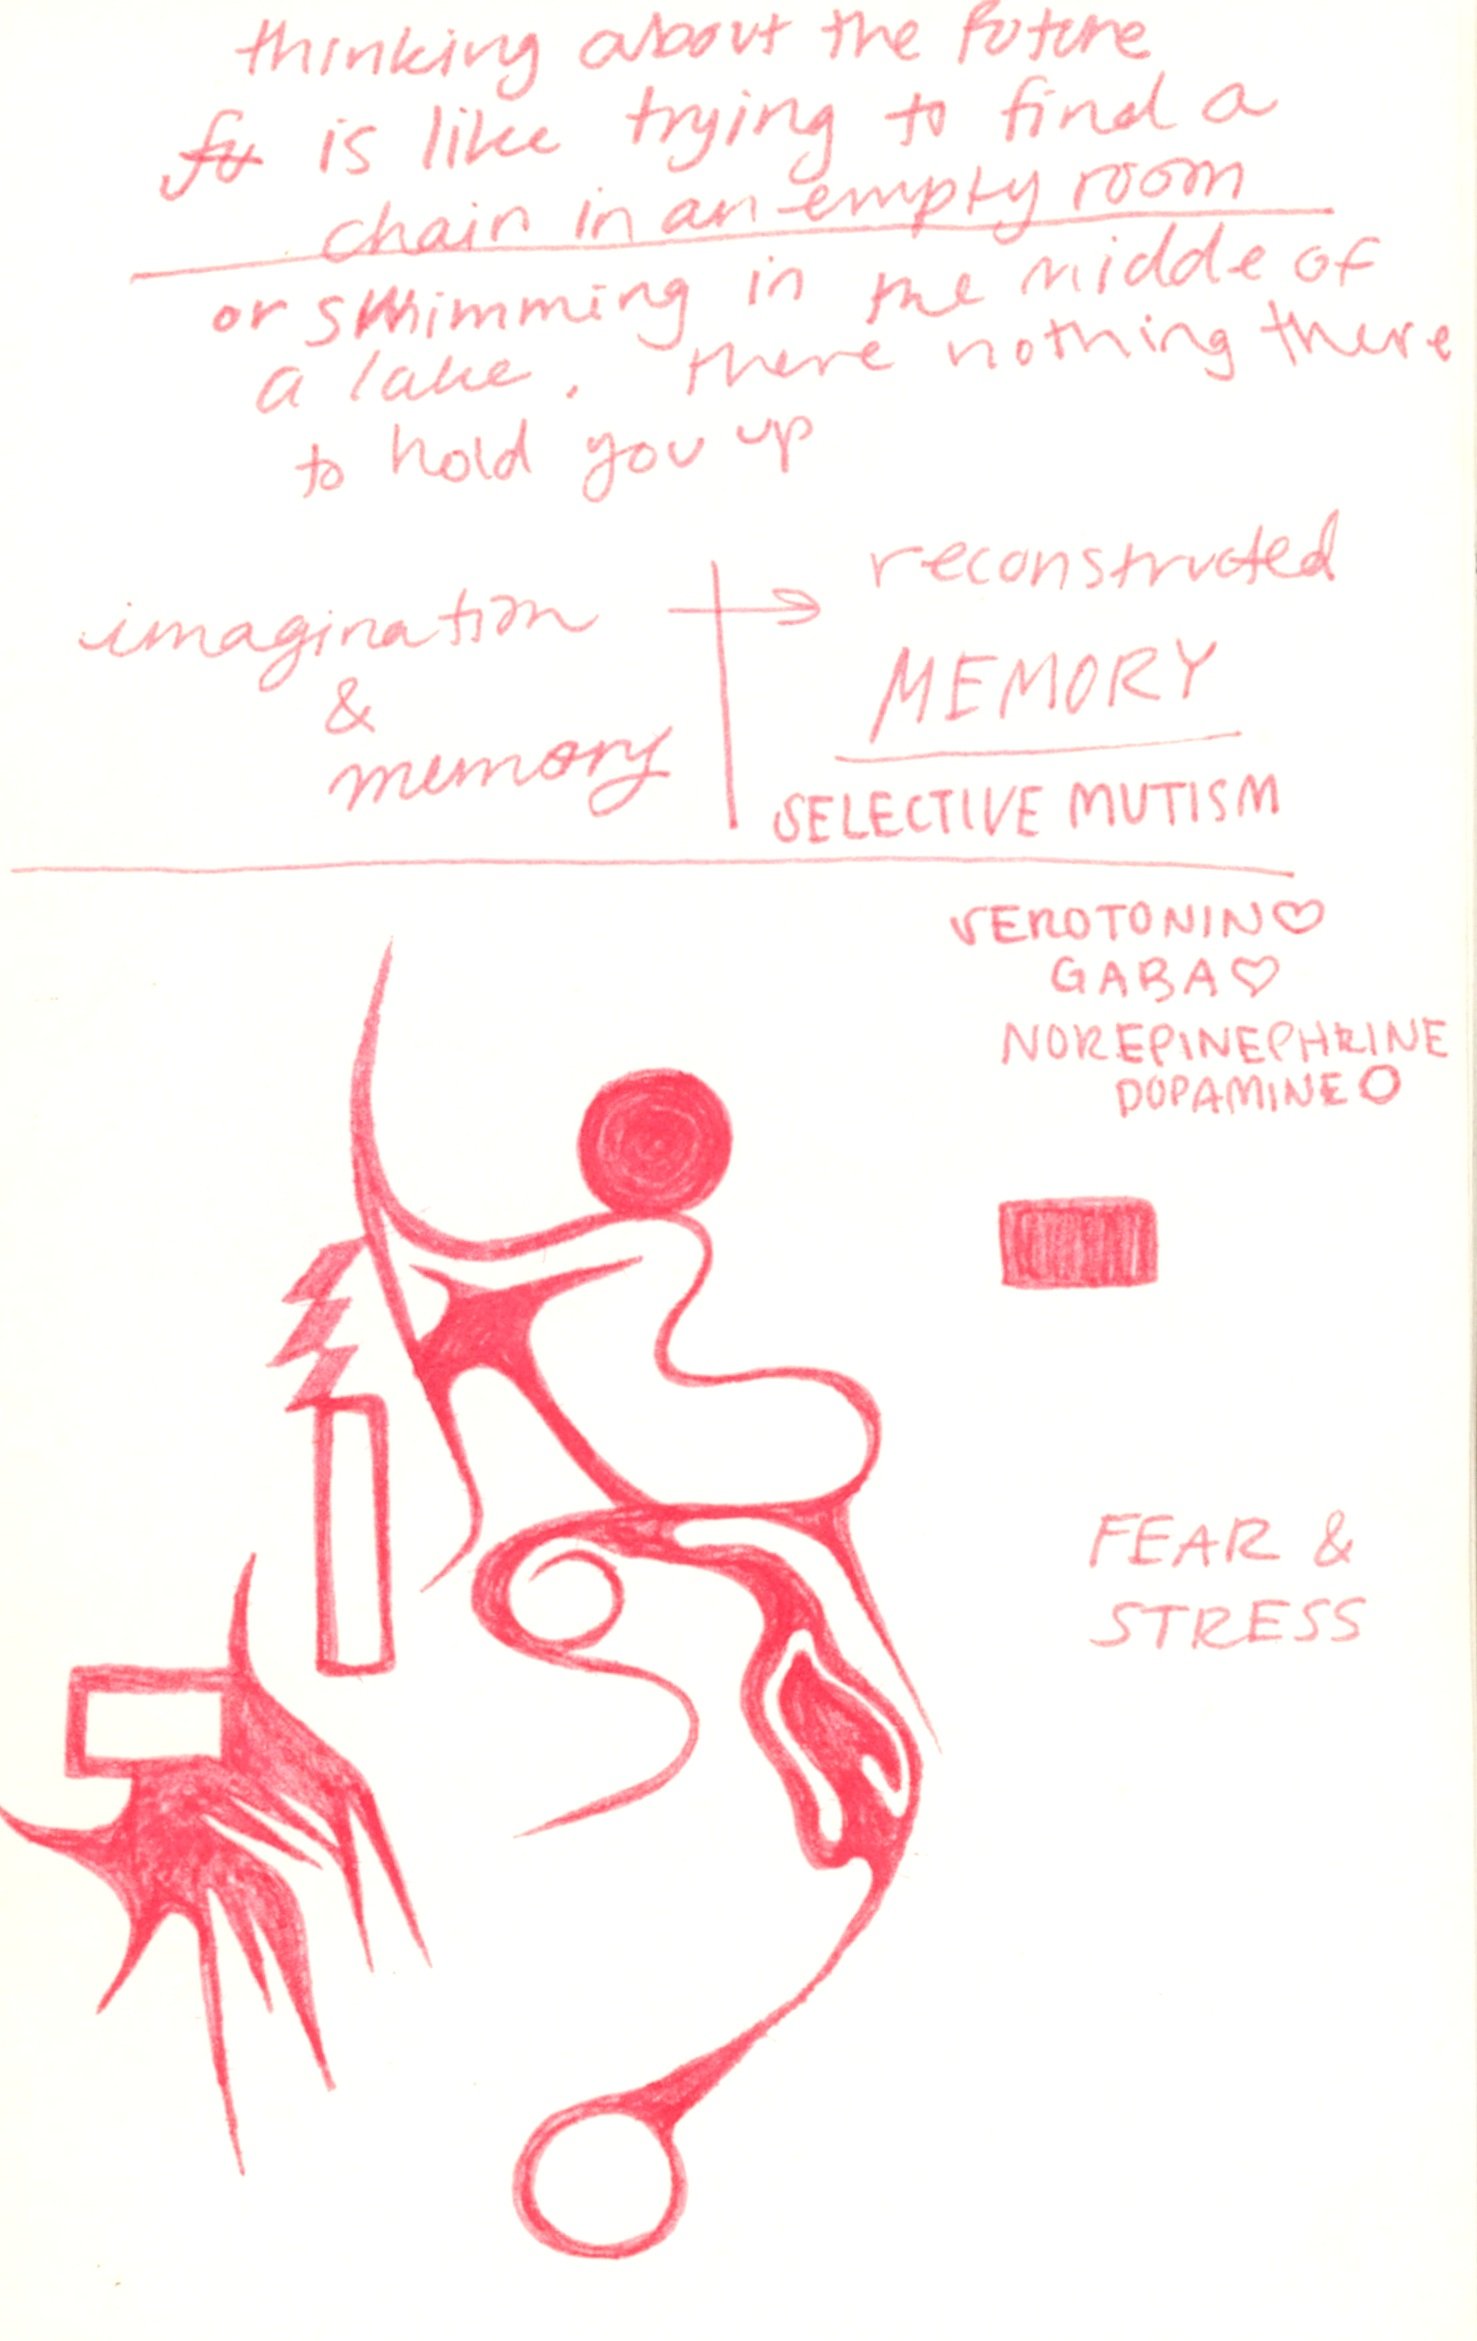 thinking about the future
fu is like trying to find a
chain in an empty room
or swimming in the middle of
a lake. there nothing there
to hold you up
imagination
&
memory
reconstructed
MEMORY
SELECTIVE MUTISM
SEROTONIN♡
GABA♡
NOREPINEPHRINE
DOPAMINE O
FEAR &
STRESS